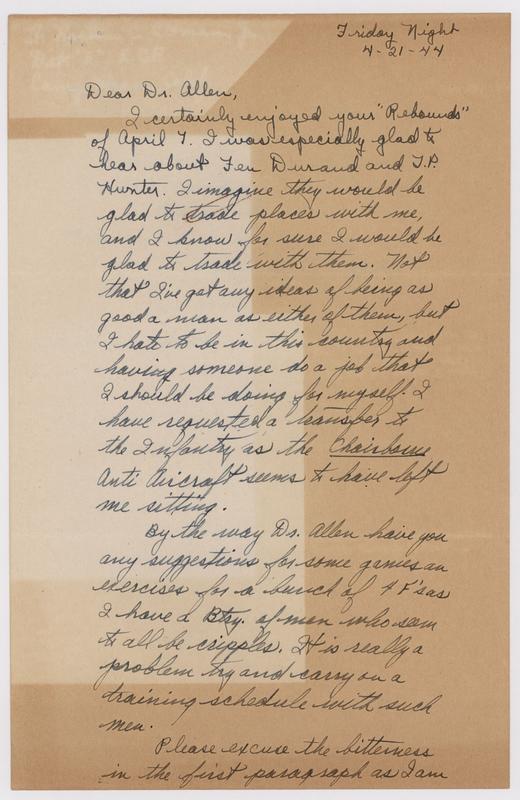 Friday Night
4-21-44
Dear Dr. Allen,
I certainly enjoyed your "Rebounds"
of April 7. I was especially glad to
hear about Fen Durand and T.P.
Hunter. I imagine they would be
glad to trade places with me,
and I know for sure I would be
glad to trade with them. Not
that I've got any ideas of being as
good a man as either of them, but
I hate to be in this country and
having someone do a job that
I should be doing for myself. I
have requested a transfer to
the Infantry as the Chairborne
Anti Aircraft seems to have left
me sitting.
By the way Dr. Allen have you
any suggestions for some games an
exercises for a bunch of 4 F's as
I have a Btry. of men who seem
to all be cripples. It is really a
problem try and carry on a
training schedule with such
men.
Please excuse the bitterness
in the first paragraph as I am